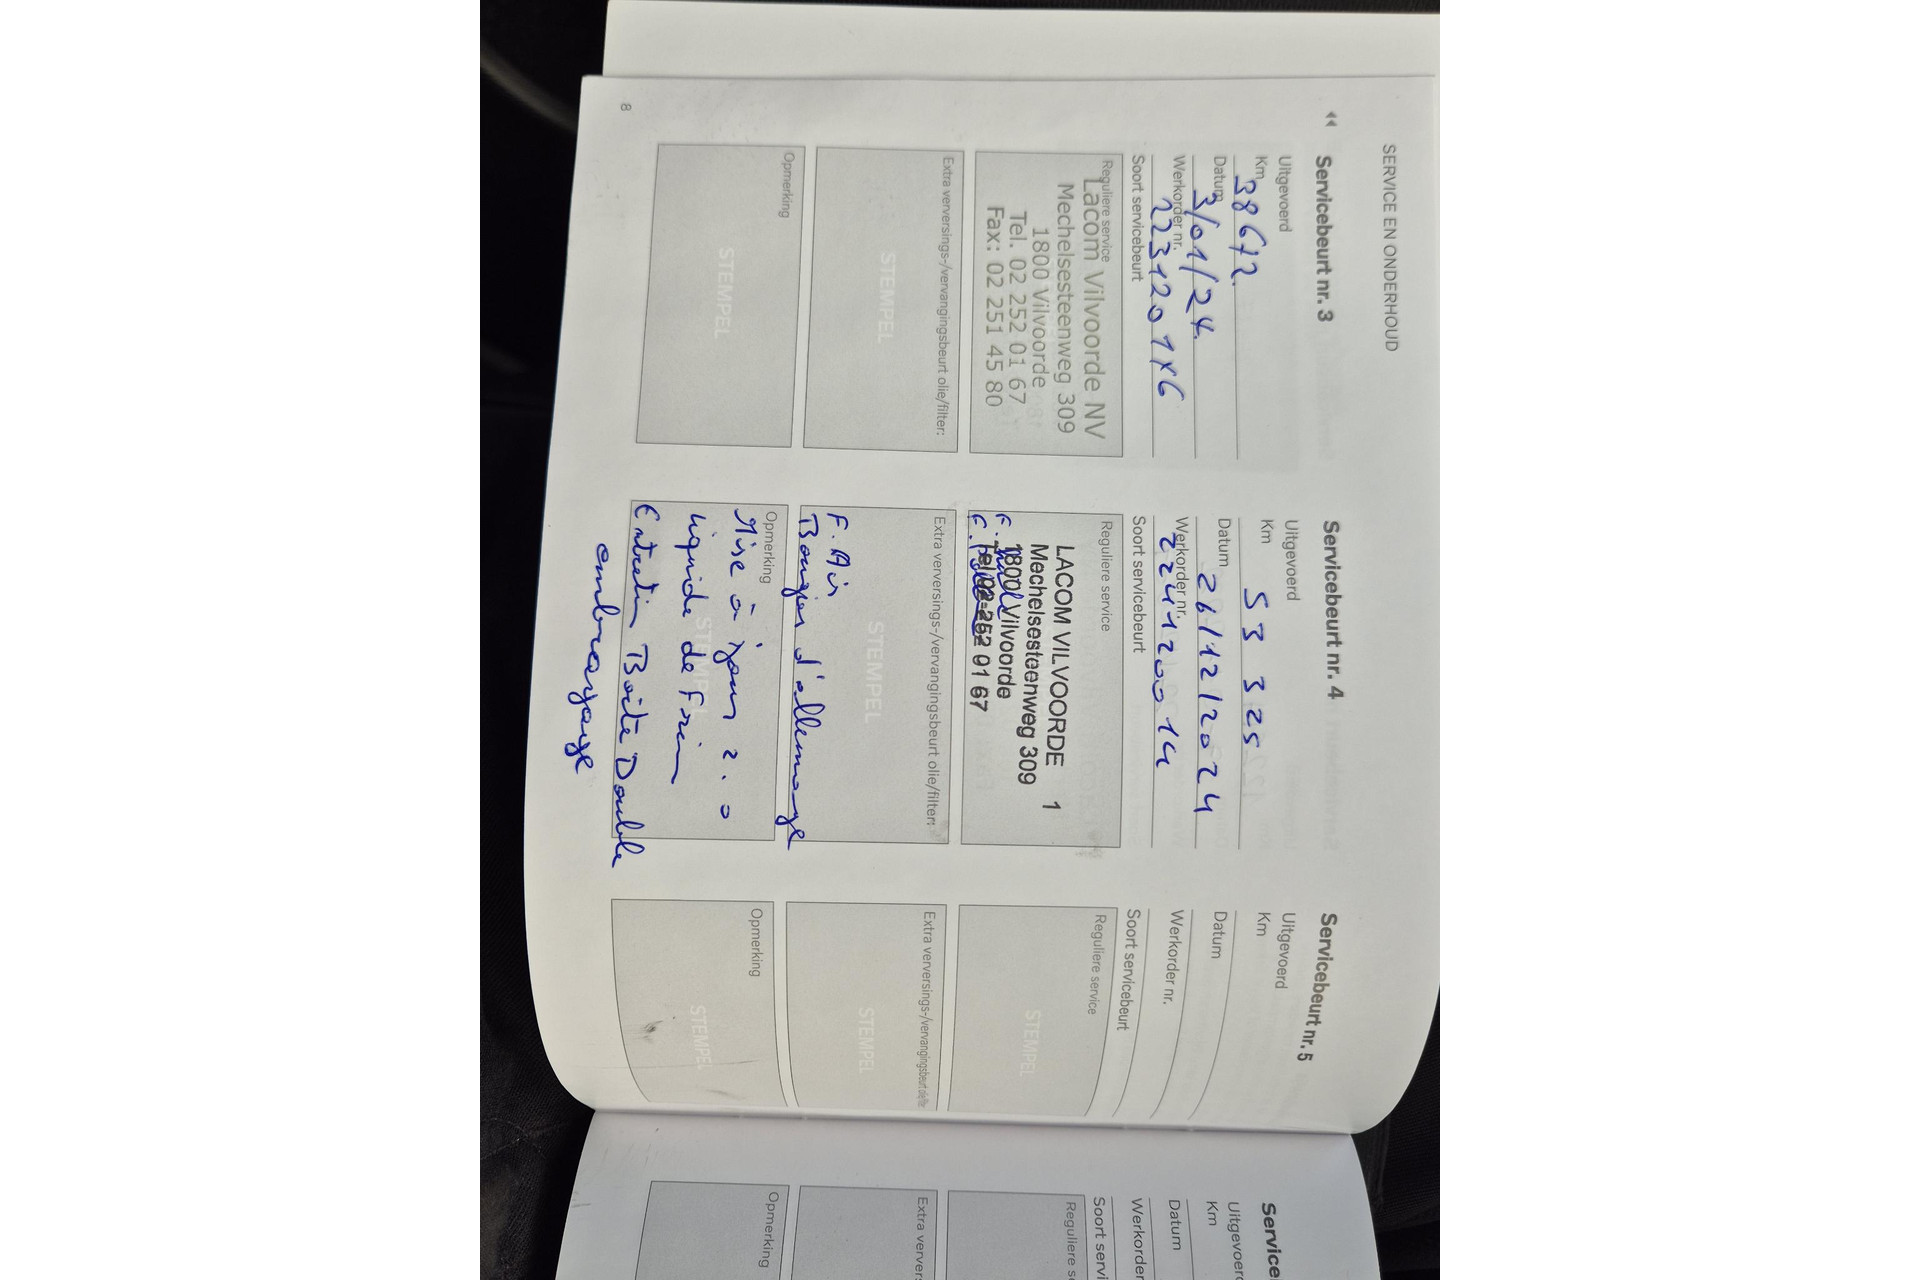 SERVICE EN ONDERHOUD
Servicebeurt nr. 3
Uitgevoerd
Km 38 672
Datum 3/01/24
Werkorder nr.
Soort servicebeurt
Reguliere service
Lacom Vilvoorde NV
Mechelsesteenweg 309
1800 Vilvoorde
Tel. 02 252 01 67
Fax: 02 251 45 80
Extra verversings-/vervangingsbeurt olie/filter:
STEMPEL
Opmerking
STEMPEL
8
Servicebeurt nr. 4
Uitgevoerd
Km 53 325
Datum 26/12/2024
Werkorder nr. 2241120014
Soort servicebeurt
Reguliere service
LACOM VILVOORDE 1
Mechelsesteenweg 309
1800 Vilvoorde
Tel 02-252 01 67
Extra verversings-/vervangingsbeurt olie/filter:
STEMPEL
F. Air
Bougies d'allumage
Opmerking
Mise à jour 2.0
STEMPEL
liquide de frein
Entretien Boîte Double
embrayage
Servicebeurt nr. 5
Uitgevoerd
Km
Datum
Werkorder nr.
Soort servicebeurt
Reguliere service
STEMPEL
Extra verversings-/vervangingsbeurt olie/filter
STEMPEL
Opmerking
STEMPEL
Service
Uitgevoerd
Km
Datum
Werkorder
Soort servi
Reguliere se
Extra ververs
Opmerking